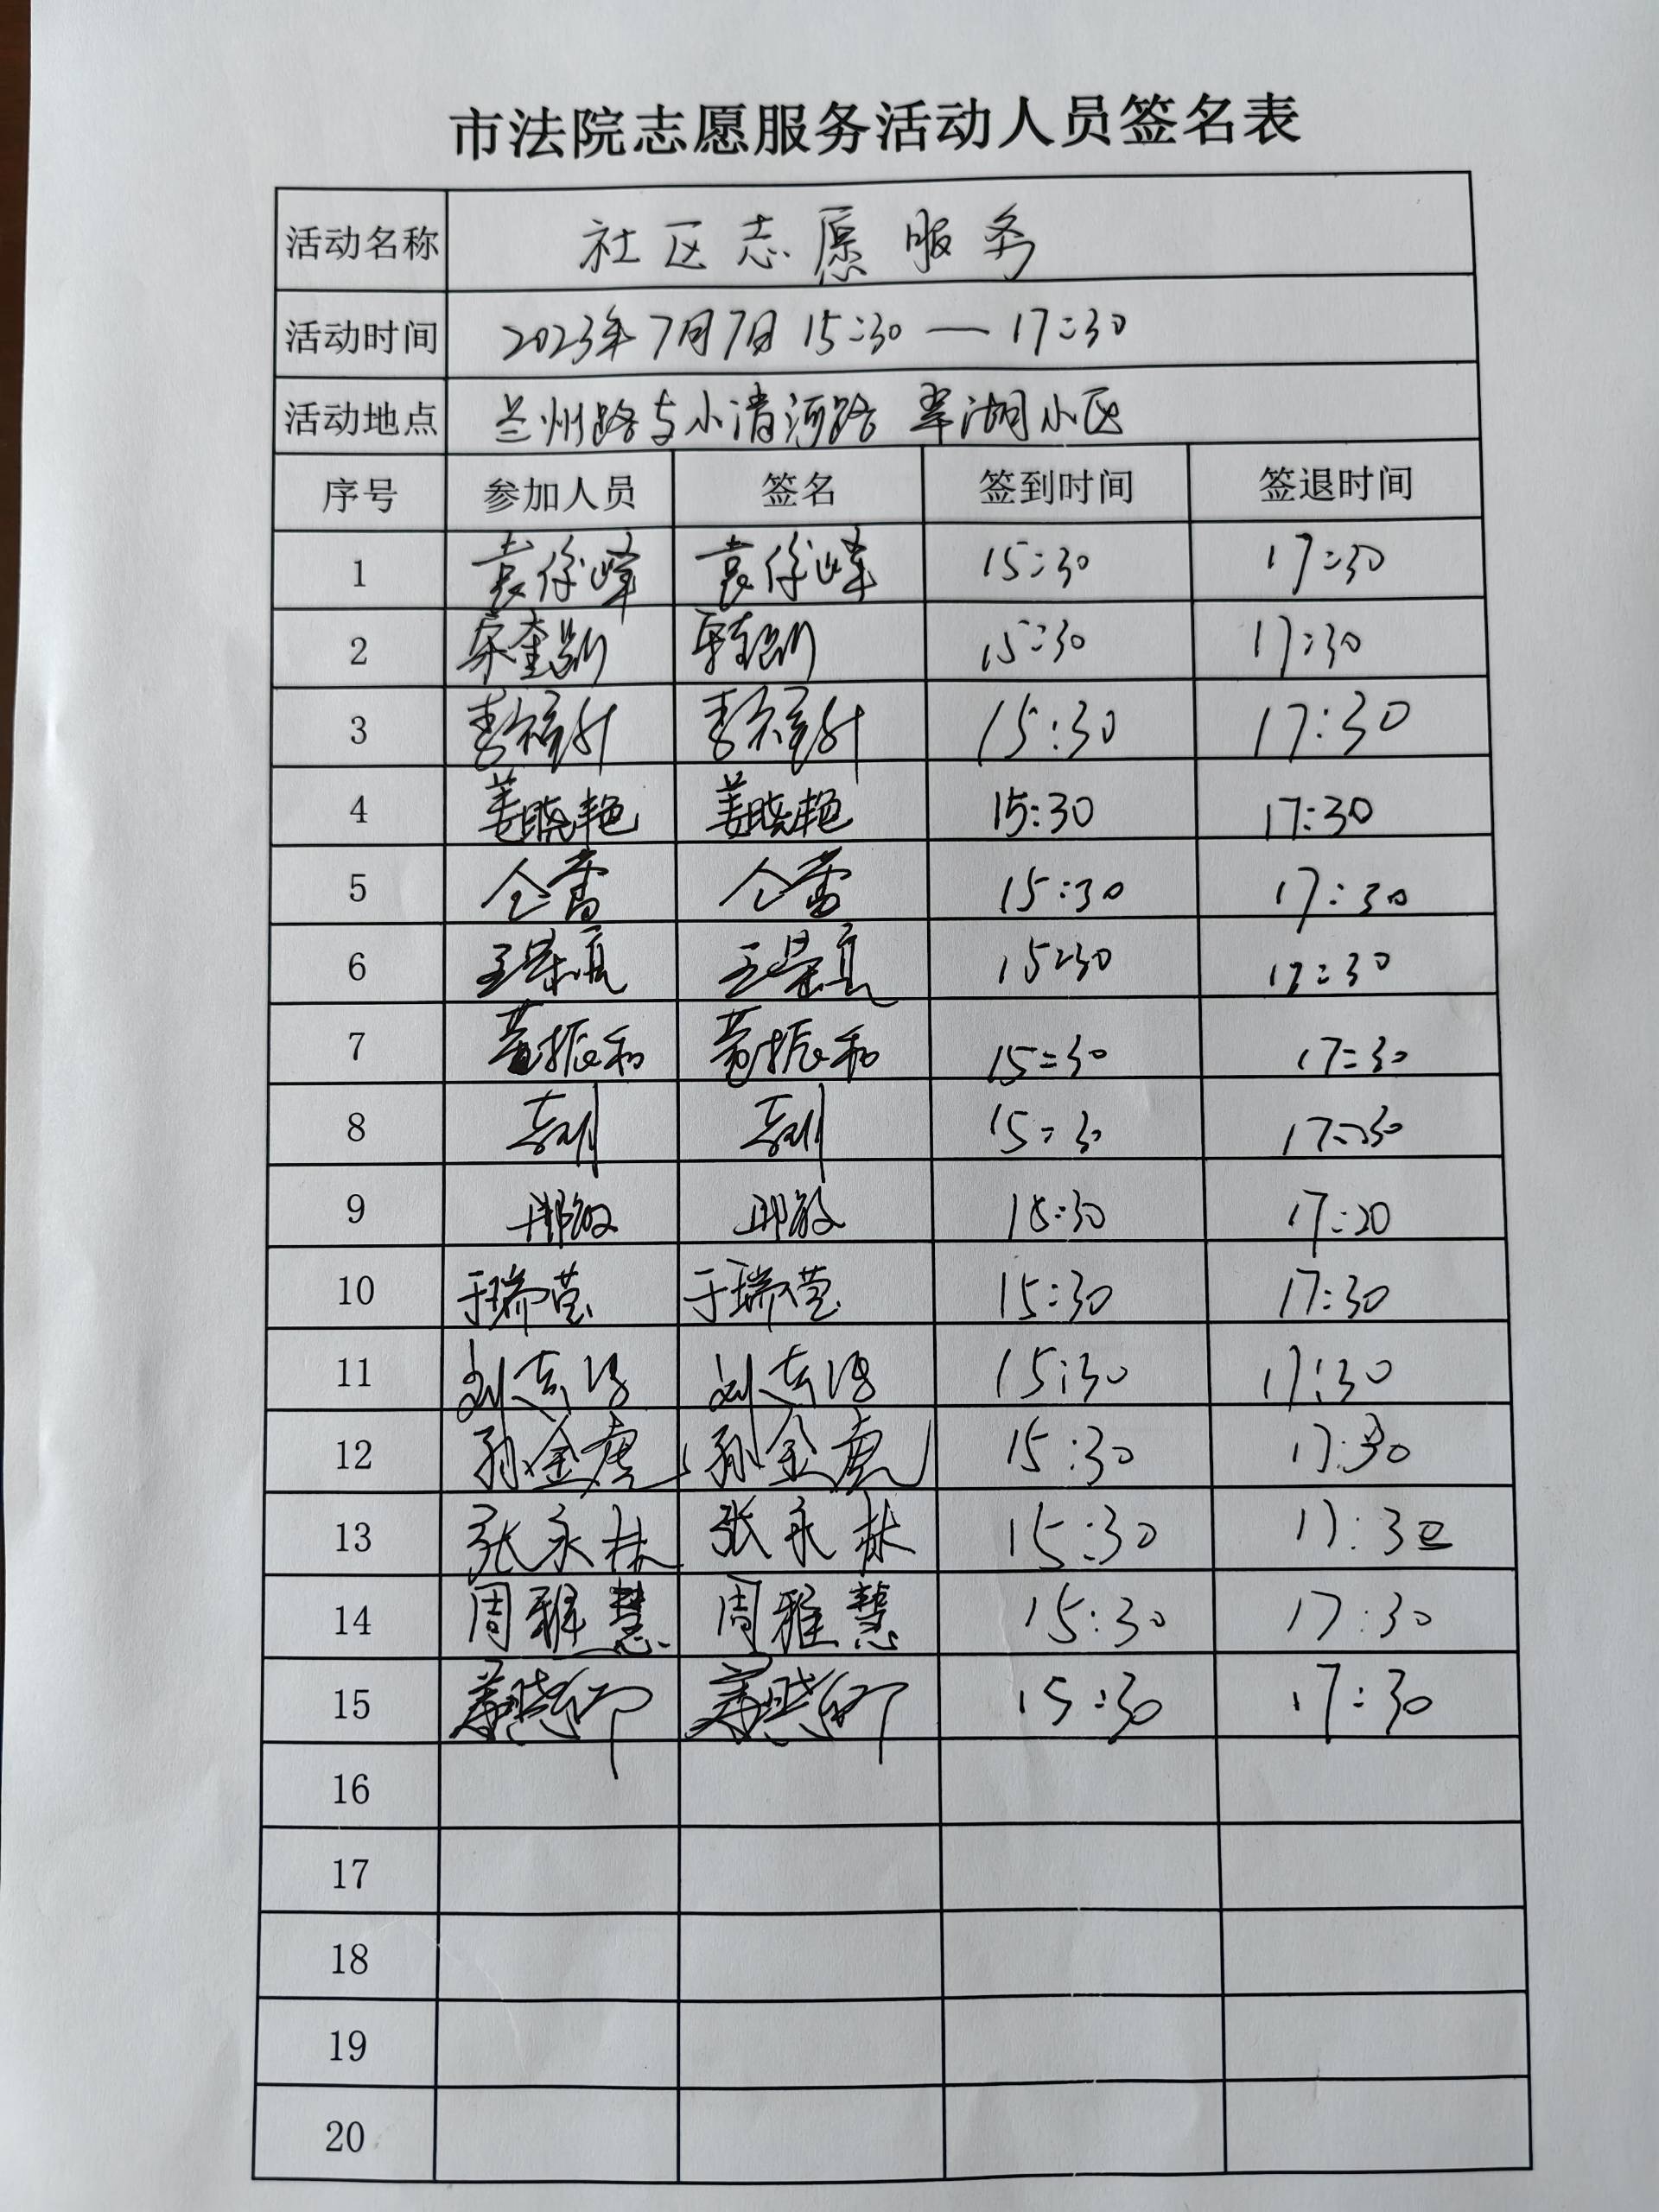 市法院志愿服务活动人员签名表
活动名称 社区志愿服务
活动时间 2023年7月7日 15:30 — 17:30
活动地点 兰州路与小清河路 翠湖小区
序号 参加人员 签名 签到时间 签退时间
1 15:30 17:30
2 15:30 17:30
3 15:30 17:30
4 姜晓艳 姜晓艳 15:30 17:30
5 仝雷 仝雷 15:30 17:30
6 15:30 17:30
7 董振和 董振和 15:30 17:30
8 15:30 17:30
9 邢敏 邢敏 15:30 17:20
10 于瑞莹 于瑞莹 15:30 17:30
11 15:30 17:30
12 孙金虎 孙金虎 15:30 17:30
13 张永林 张永林 15:30 17:30
14 周雅慧 周雅慧 15:30 17:30
15 15:30 17:30
16
17
18
19
20